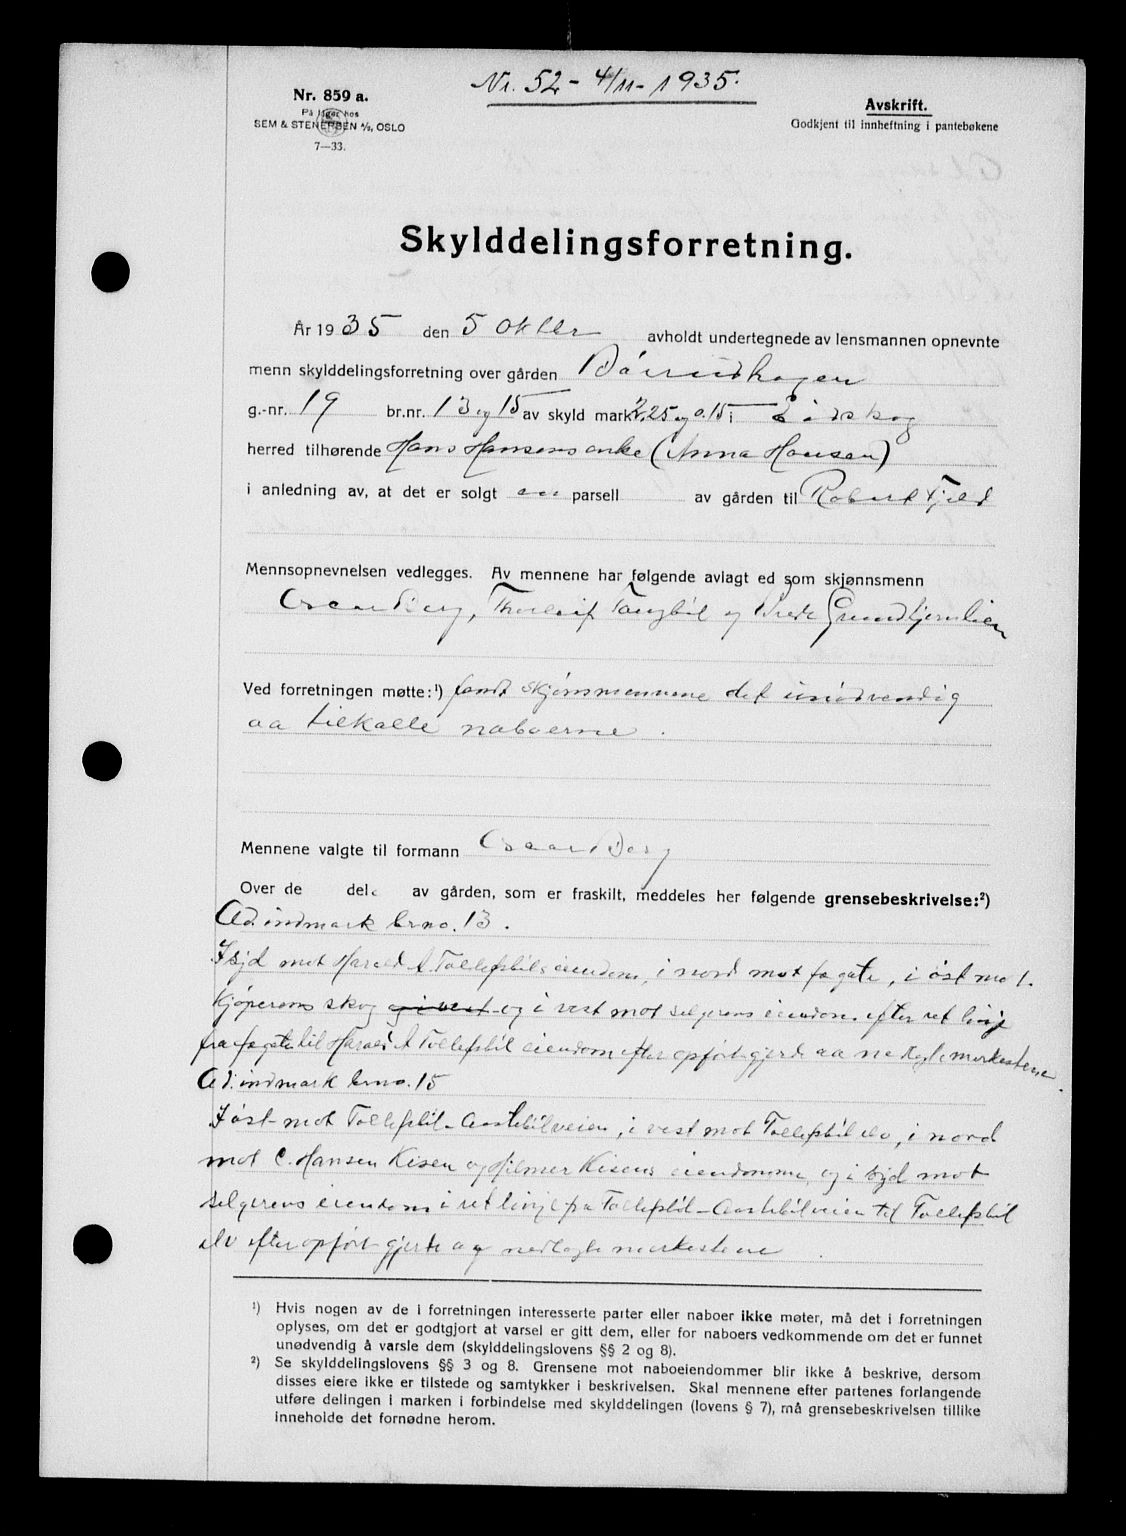 Nr. 52 - 4/11 - 1935.
Nr. 859 a.
På lager hos
SEM & STENERSEN A/S, OSLO
7—33.
Avskrift.
Godkjent til innheftning i pantebøkene
Skylddelingsforretning.
År 1935 den 5 oktbr avholdt undertegnede av lensmannen opnevnte
menn skylddelingsforretning over gården
g.-nr. 19 br.nr. 13 og 15 av skyld mark 2.25 og 0.15 i Eidskog
herred tilhørende Hans Hansens enke (Anna Hansen)
i anledning av, at det er solgt en parsell av gården til Robert Fjeld
Mennsopnevnelsen vedlegges. Av mennene har følgende avlagt ed som skjønnsmenn
Oscar Berg, Thorleif Tangbøl og
Ved forretningen møtte:¹) fandt skjønsmennene det unødvendig
aa tilkalle naboerne.
Mennene valgte til formann Oscar Berg
Over de dele av gården, som er fraskilt, meddeles her følgende grensebeskrivelse:²)
Ad. indmark brno. 13.
I syd mot Harald A Tollefsbøls eiendom, i nord mot fægate, i øst mot
kjøperens skog og i vest og i vest mot selgerens eiendom efter ret linje
fra fægate til Harald A Tollefsbøl eiendom efter opført gjerde aa nedlagte merkestene.
Ad. indmark brno. 15
I øst mot Tollefsbøl - veien, i vest mot Tollefsbøl elv, i nord
mot C. Hansen Kisen og Hilmer Kisens eiendomme og i syd mot
selgerens eiendom i ret linje fra Tollefsbøl - veien til Tollefsbøl
elv efter opført gjerde og nedlagte merkestene.
¹) Hvis nogen av de i forretningen interesserte parter eller naboer ikke møter, må det i forretningen
oplyses, om det er godtgjort at varsel er gitt dem, eller for naboers vedkommende om det er funnet
unødvendig å varsle dem (skylddelingslovens §§ 2 og 8).
²) Se skylddelingslovens §§ 3 og 8. Grensene mot naboeiendommer blir ikke å beskrive, dersom
disses eiere ikke er tilstede og samtykker i beskrivelsen. Skal mennene efter partenes forlangende
utføre delingen i marken i forbindelse med skylddelingen (lovens § 7), må grensebeskrivelsen tillike
inneholde det fornødne herom.